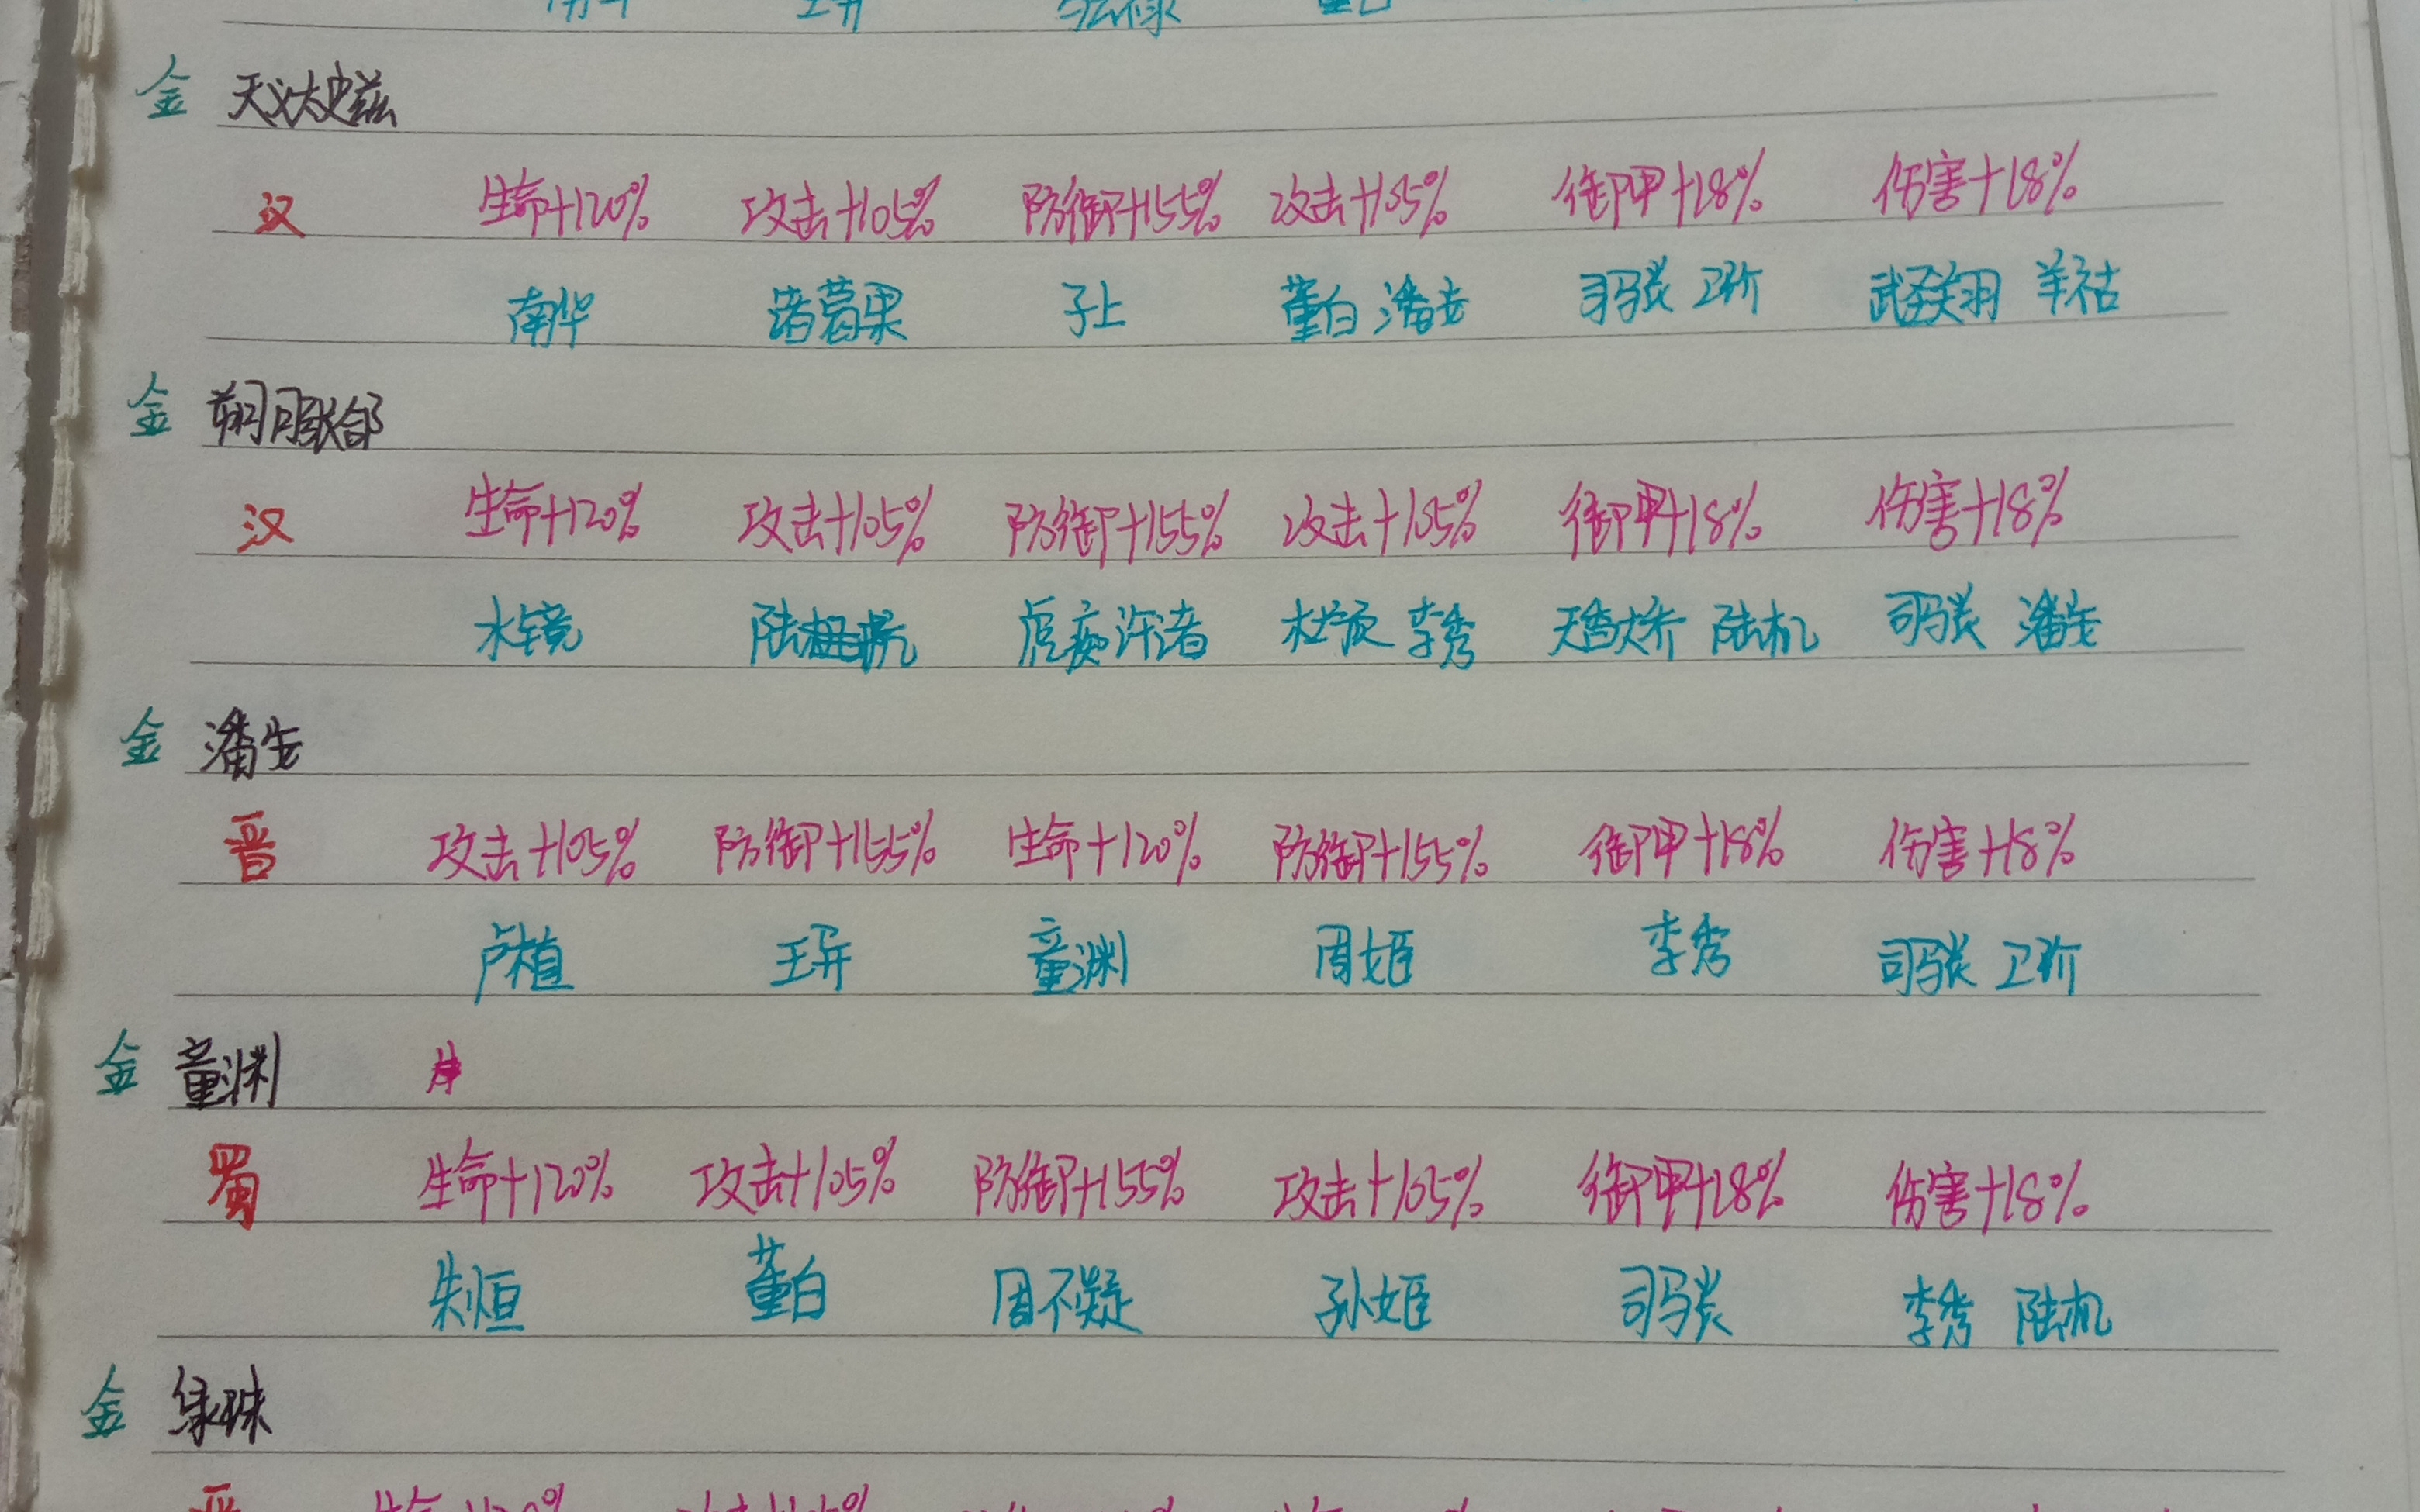 金 天义太史慈
汉 生命+120% 攻击+105% 防御+155% 攻击+105% 御甲+18% 伤害+18%
南华 诸葛果 子上 董白 潘安 司马炎 卫玠 武关羽 羊祜
金 朔月张郃
汉 生命+120% 攻击+105% 防御+155% 攻击+105% 御甲+18% 伤害+18%
水镜 陆抗 虎痴许诸 杜预 李秀 天香大乔 陆机 司马炎 潘安
金 潘安
晋 攻击+105% 防御+155% 生命+120% 防御+155% 御甲+18% 伤害+18%
卢植 王异 童渊 周姬 李秀 司马炎 卫玠
金 童渊
蜀 生命+120% 攻击+105% 防御+155% 攻击+105% 御甲+18% 伤害+18%
朱恒 董白 周不疑 孙姬 司马炎 李秀 陆机
金 绿珠